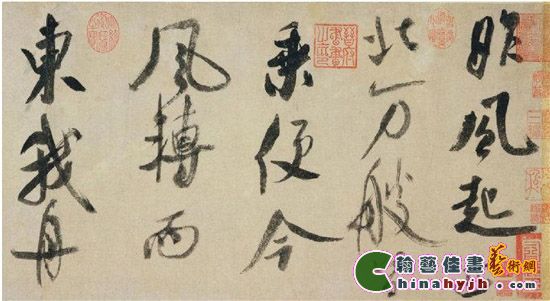 昨風起
北万艘
乘便今
風轉而
東我舟
翰藝佳畫藝術網
Chinahyjh.com